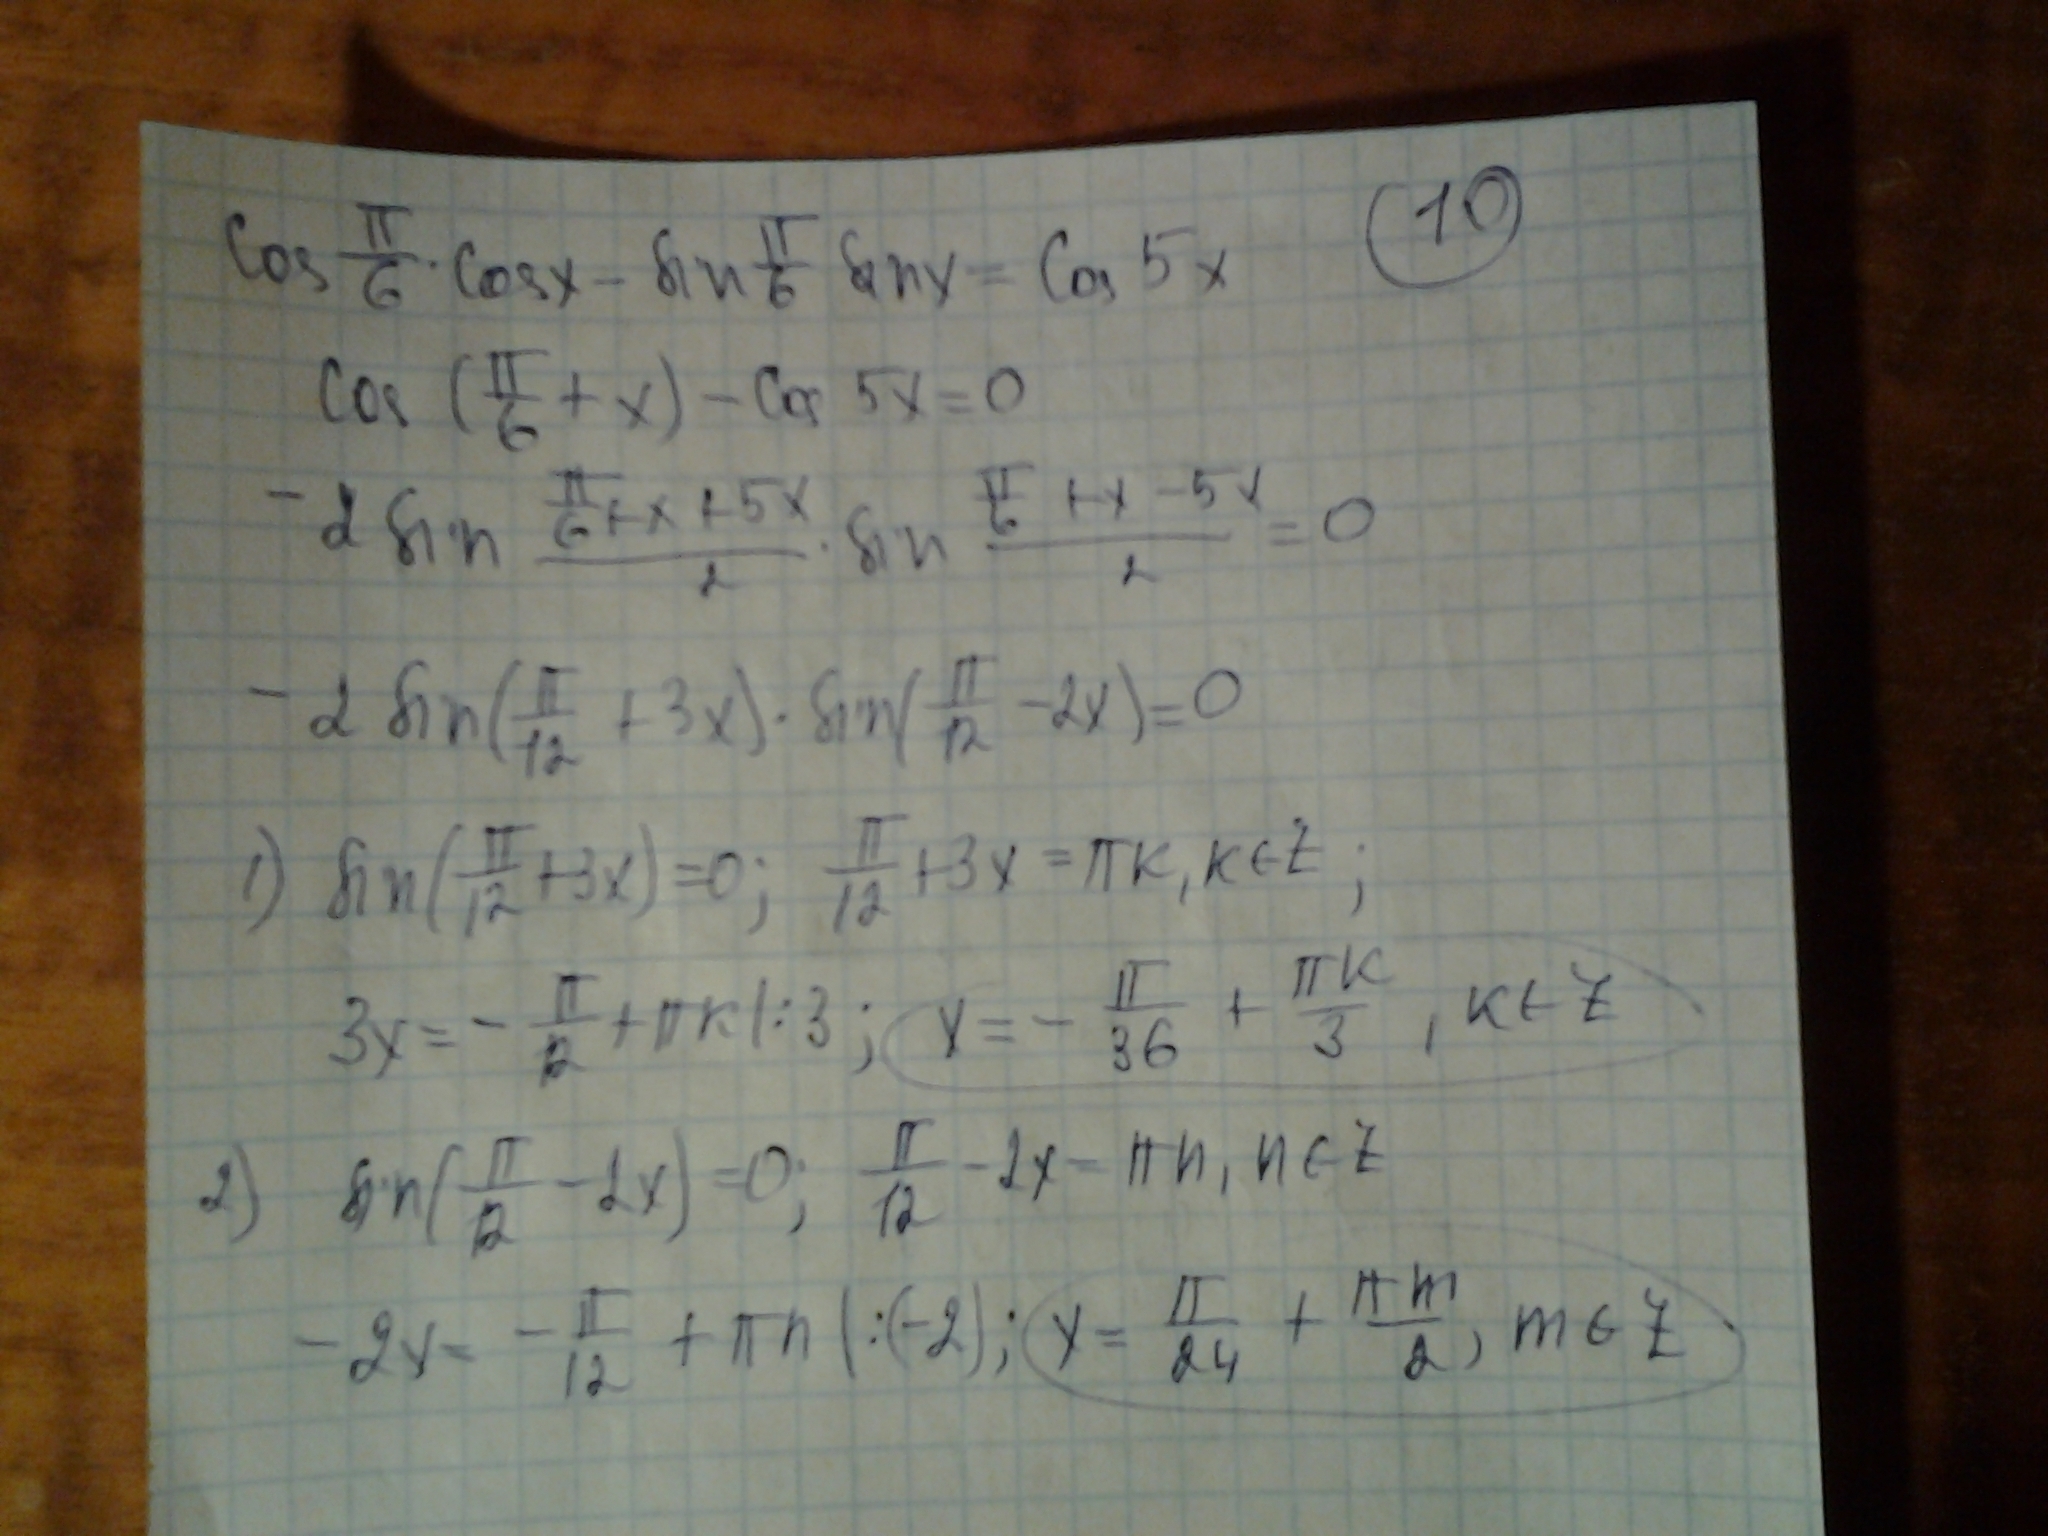 cos π/6 · cosx - sin π/6 sinx = cos 5x
10
cos (π/6 + x) - cos 5x = 0
-2 sin (π/6 + x + 5x)/2 · sin (π/6 + x - 5x)/2 = 0
-2 sin(π/12 + 3x) · sin(π/12 - 2x) = 0
1) sin(π/12 + 3x) = 0; π/12 + 3x = πk, k∈Z;
3x = - π/12 + πk |:3; x = - π/36 + πk/3, k∈Z
2) sin(π/12 - 2x) = 0; π/12 - 2x = πn, n∈Z
-2x = - π/12 + πn |:(-2); x = π/24 + πm/2, m∈Z